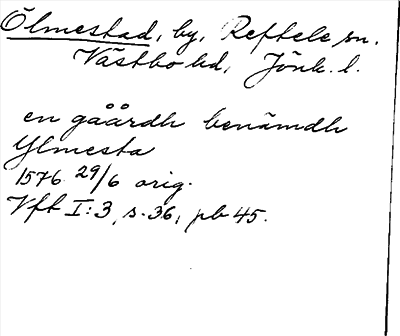 Ölmestad, by, Reftele sn.
Västbo hd, Jönk. l.
en gåårdh benämdh
Ylmesta
1576 29/6 orig.
Vfk I:3, s. 36, pb 45.